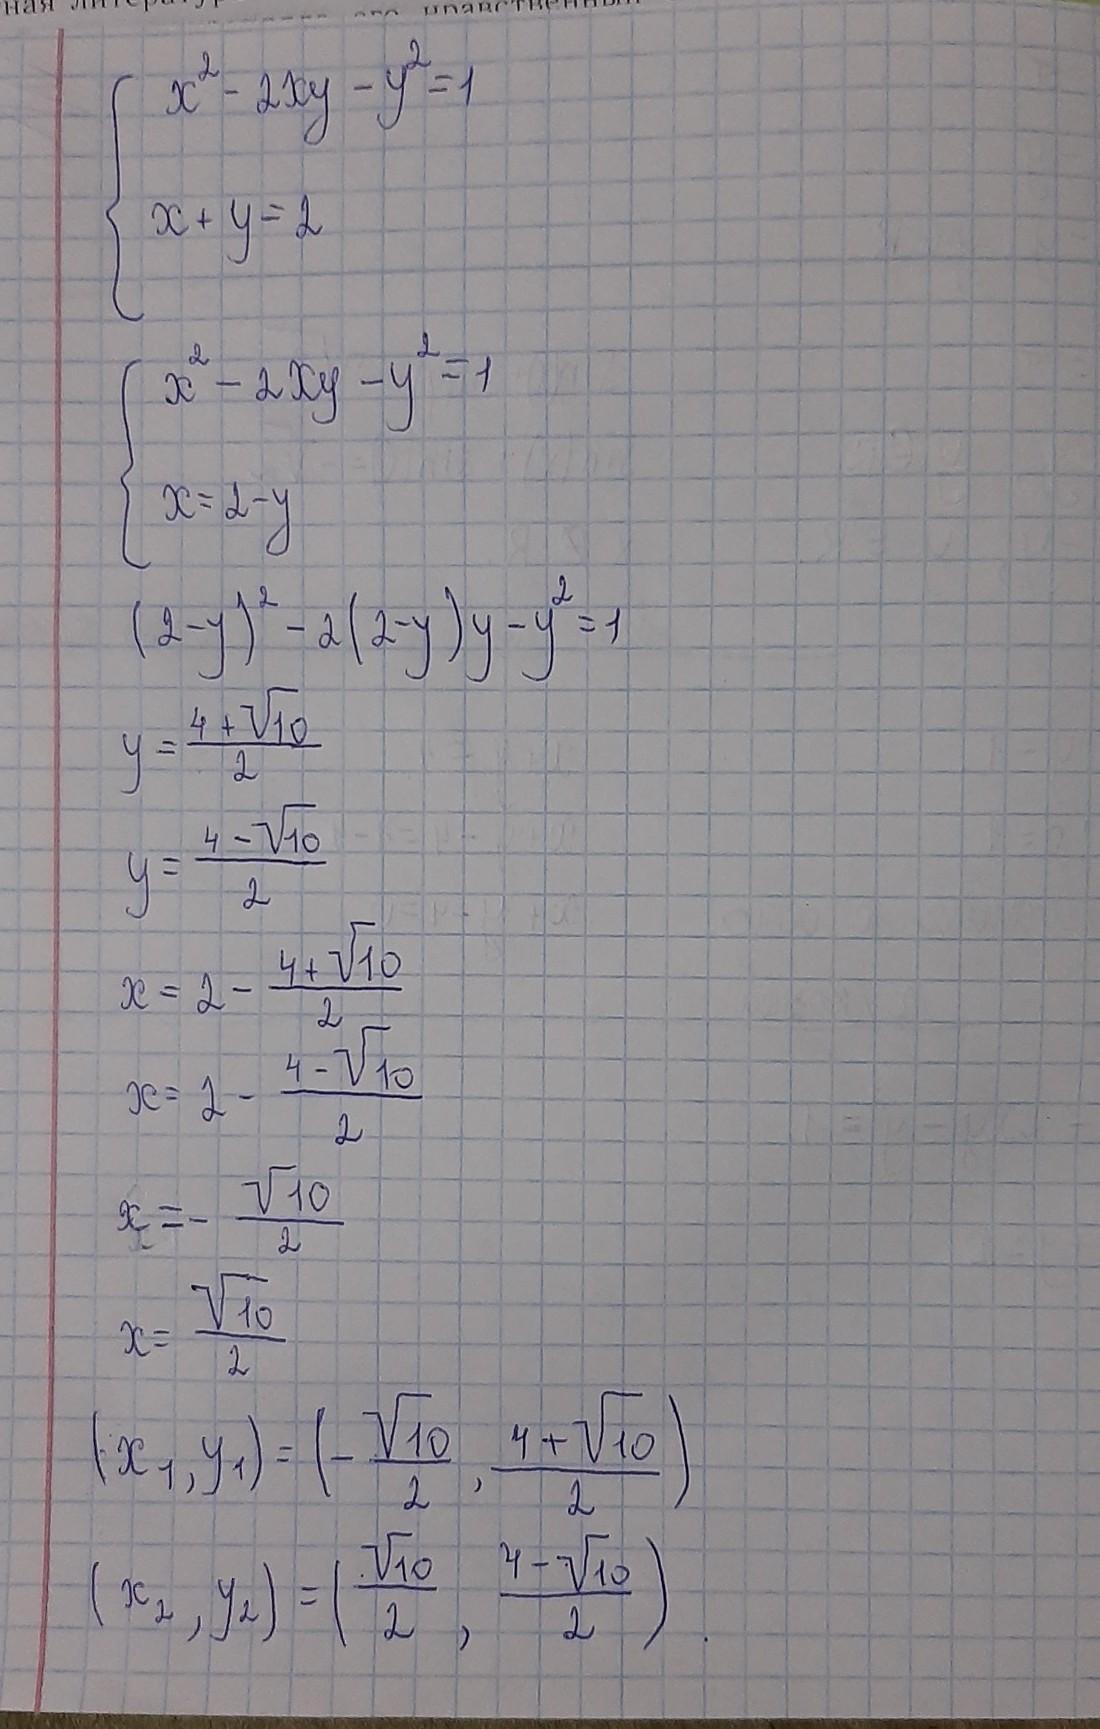 ная литератур
{ x² - 2xy - y² = 1
x + y = 2
{ x² - 2xy - y² = 1
x = 2 - y
(2-y)² - 2(2-y)y - y² = 1
y = (4+√10)/2
y = (4-√10)/2
x = 2 - (4+√10)/2
x = 2 - (4-√10)/2
x = - √10/2
x = √10/2
(x₁, y₁) = (- √10/2, (4+√10)/2)
(x₂, y₂) = (√10/2, (4-√10)/2).